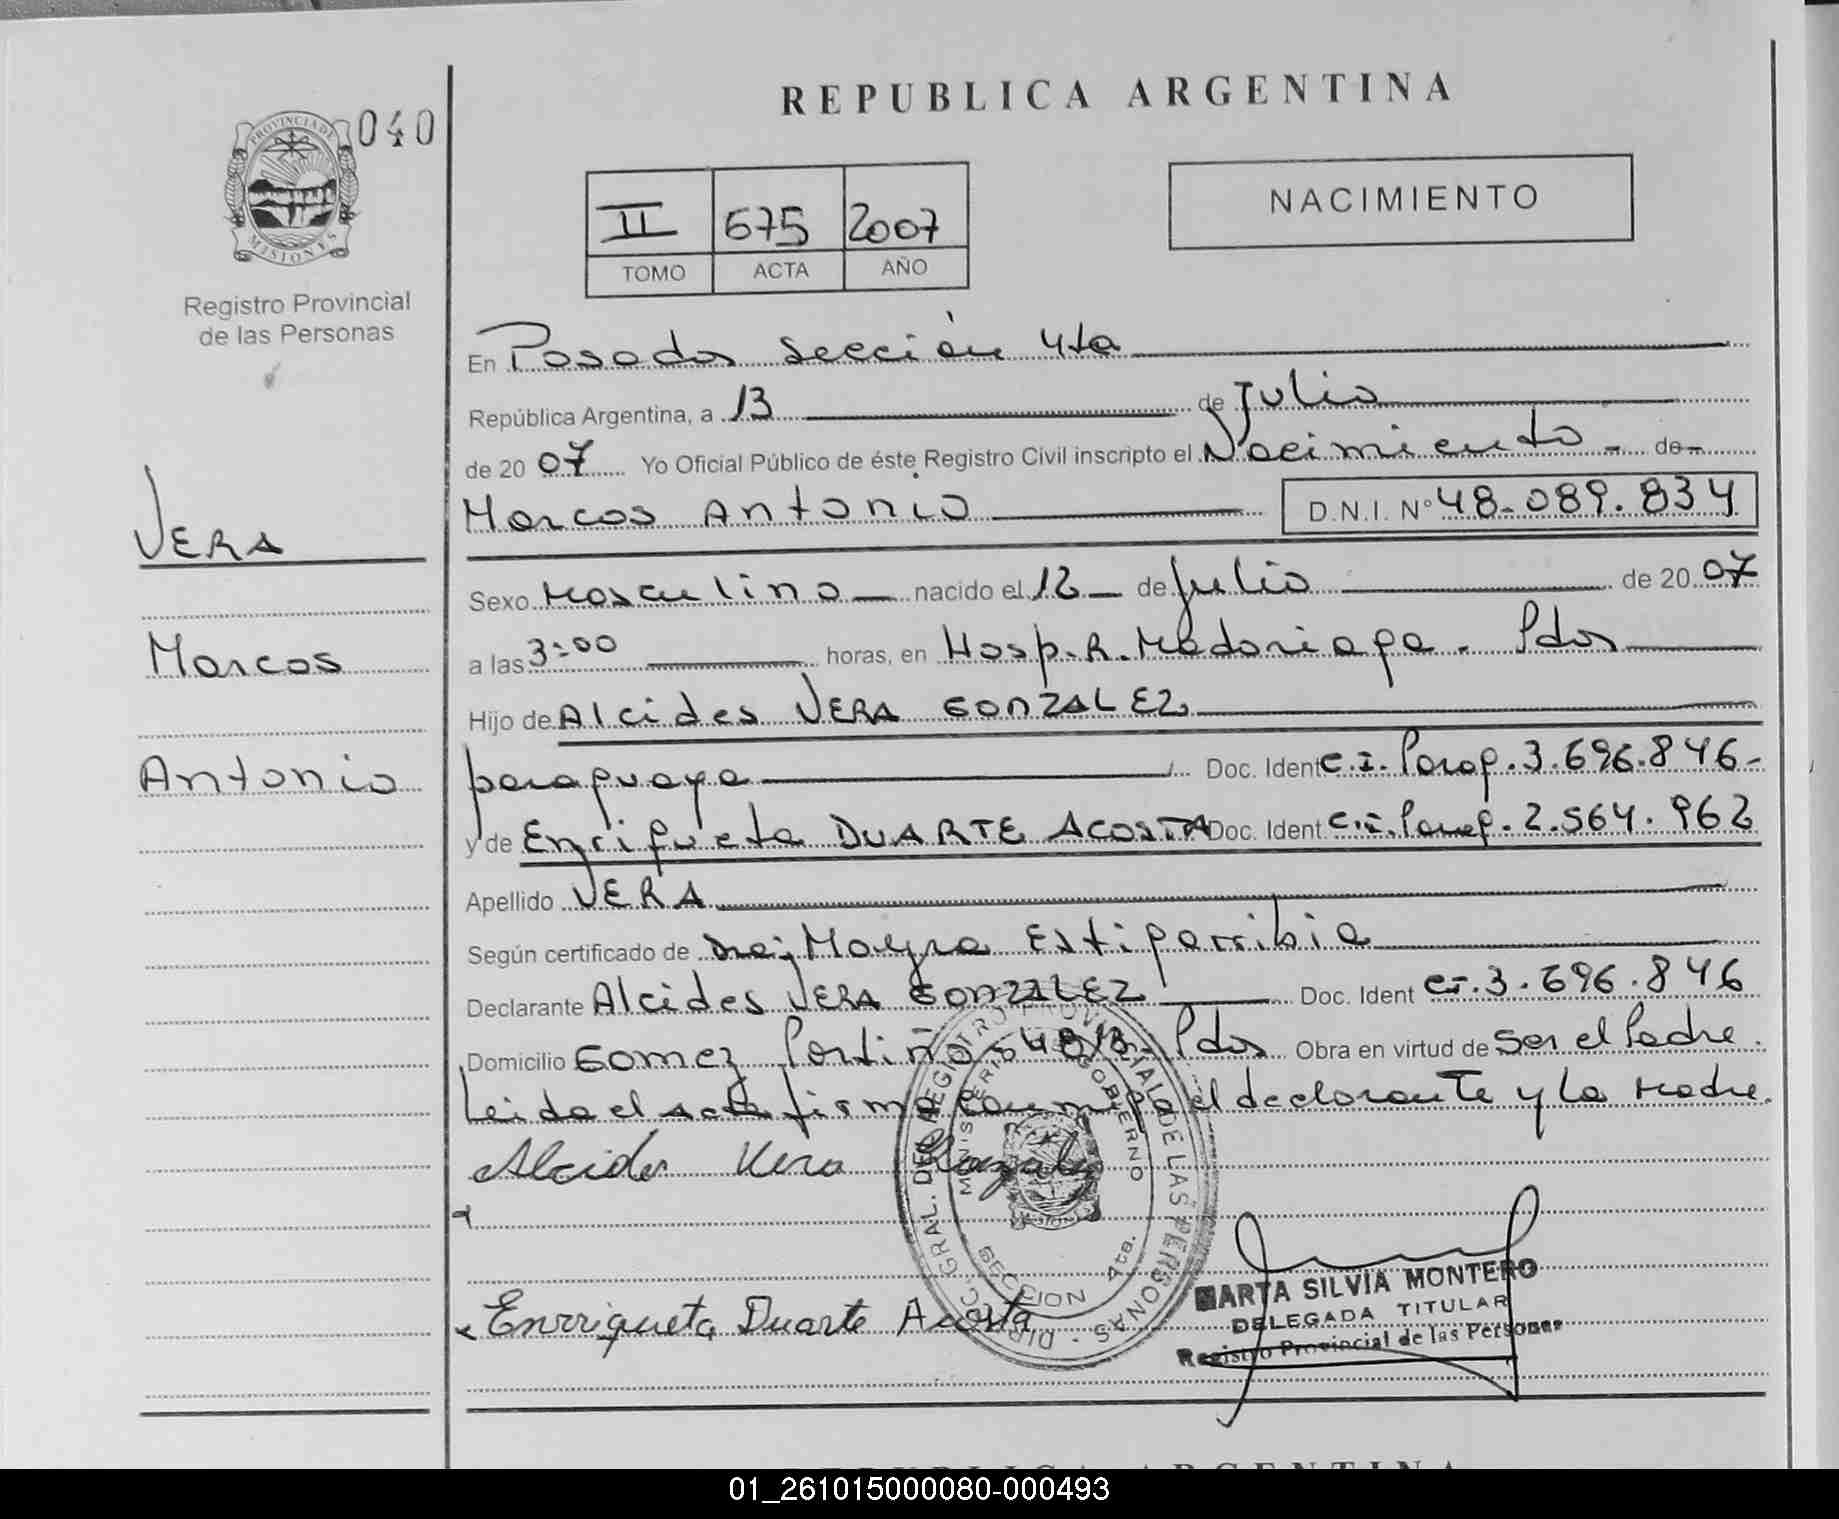 REPUBLICA ARGENTINA
040
PROVINCIA DE MISIONES
Registro Provincial
de las Personas
II 675 2007
TOMO ACTA AÑO
NACIMIENTO
En Posadas sección 4ta
República Argentina, a 13 de Julio
de 20 07 Yo Oficial Público de éste Registro Civil inscripto el Nacimiento - de -
Marcos Antonio D.N.I. Nº 48.089.834
VERA
Marcos
Antonio
Sexo Masculino nacido el 12 de Julio de 20 07
a las 3:00 horas, en Hosp. R. Madariaga. Pdas
Hijo de Alcides VERA GONZALEZ
paraguaya Doc. Ident C.I. Parag. 3.696.846-
y de Enriqueta DUARTE ACOSTA Doc. Ident C.I. Parag. 2.564.962
Apellido VERA
Según certificado de Dra; Mayra Estigarribia
Declarante Alcides VERA GONZALEZ Doc. Ident CI. 3.696.846
Domicilio Gomez Portiño Pdas Obra en virtud de Ser el Padre.
Leida el acta firma conmigo el declarante y la Madre.
Alcides Vera Gonzalez
Enrriqueta Duarte Acosta
DIRECC. GRAL. DEL REGISTRO PROVINCIAL DE LAS PERSONAS
MINISTERIO GOBIERNO
SECCION 4ta.
MARTA SILVIA MONTERO
DELEGADA TITULAR
Registro Provincial de las Personas
01_261015000080-000493